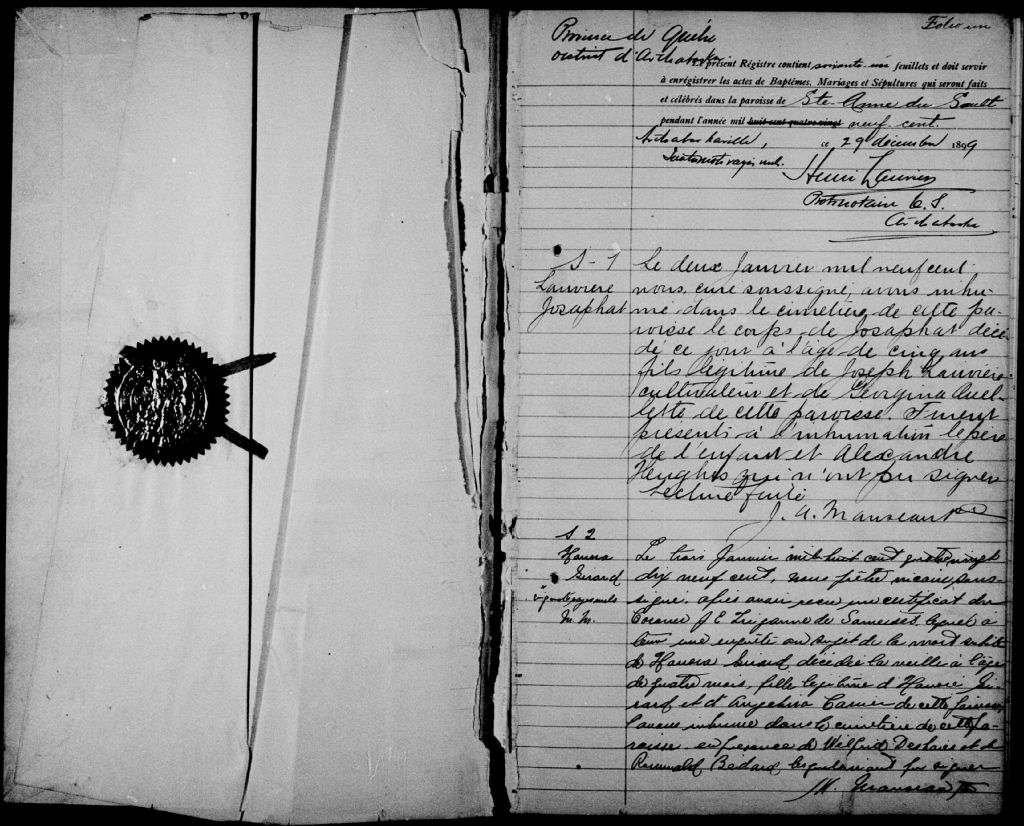 Folio un
Province de Québec
District d'Arthabaska
présent Régistre contient soixante un feuillets et doit servir
à enrégistrer les actes de Baptêmes, Mariages et Sépultures qui seront faits
et célébrés dans la paroisse de Ste-Anne du Sault
pendant l'année mil huit cent quatre vingt neuf cent.
Arthabaskaville, ce 29 décembre 1899
mots rayés nuls.
Henri Laurier
Protonotaire C. S.
Arthabaska
S-1
Lauriere
Josaphat
Le deux Janvier mil neuf cent
nous, curé soussigné, avons inhu-
mé dans le cimetière de cette pa-
roisse le corps de Josaphat décé-
dé ce jour à l'âge de cinq ans
fils légitime de Joseph Lauriere
cultivateur et de Georgina Ouel-
lette de cette paroisse. Furent
présents à l'inhumation le père
de l'enfant et Alexandre
qui n'ont pu signer
Lecture faite
J. A. Manseau Ptre
S 2
Honora
Girard
quatre rayés nuls
M. M.
Le trois Janvier mil huit cent quatre vingt
dix neuf cent, nous prêtre vicaire sous-
signé, après avoir reçu un certificat du
Coroner J E de Somerset, lequel a
tenu une enquête au sujet de la mort subite
de Honora Girard décédée la veille à l'âge
de quatre mois, fille légitime d'Honoré Gi-
rard et d' de cette paroisse
l'avons inhumée dans le cimetière de cette pa-
roisse en présence de Wilfrid Deshaies et de
Romuald Bédard lesquels n'ont pu signer
M. Manseau Ptre